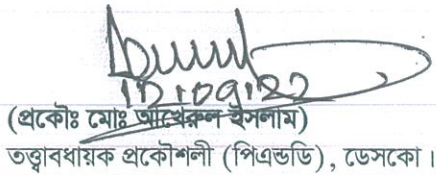 12.09.22
(প্রকৌঃ মোঃ আখেরুল ইসলাম)
তত্ত্বাবধায়ক প্রকৌশলী (পিএন্ডডি), ডেসকো।